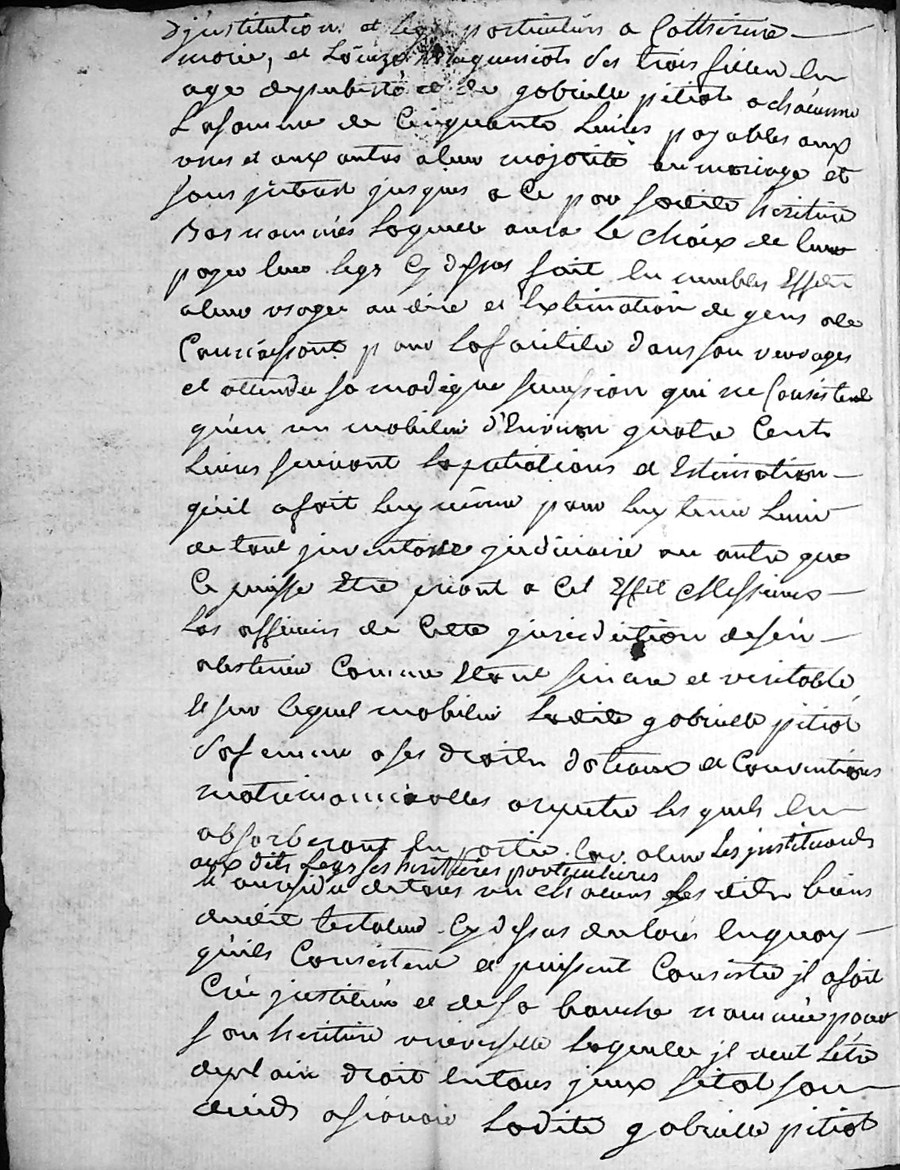 d'jnstitution et legs particuliers a Catherine
marie, et Louize les trois filles en
age depuberté et de gabrielle pitiot a chacune
Lasomme de Cinquante Livres payables aux
unes et aux autres aleur majorité ou mariage et
sans jnterest jusques a Ce par sadite heritiere
Bas nommée Laquelle aura Le choix de leur
payer leur legs Cy dessus soit En meubles Effets
aleur usage au dire et Extimation de gens ace
Connoissant pour Lesfaciliter dansson vervages
et attendu sa modique succession qui ne Consistent
qu'en un mobilier d'Environ quatre Cents
Livres suivant Lapretiations et Estimation
qu'il afait luy même pour luy tenir Lieu
de tout jnventaire judiciaire ou autre que
Ce puisse Etre priant a Cet Effet Messieurs
Les officiers de Cette jurisdiction desen
abstenir Comme Etant sincere et veritable
Et sur lequel mobilier Ladite gabrielle pitiot
Safemme a ses droits dotaux et Conventions
matrimonialles a repeter les quels En
absorberont En partie aleur Les jnstituants
aux dits Legs ses heritieres particulieres
Et au residu detous un chacuns Les dits biens
dudit testateur Cy dessus enquoy
qu'ils Consistent et puissent Consister jl afait
Créé jnstitué et de sa bouche nommée pour
son heritiere universelle Laquelle jl veut L'etre
deplain droit Entous jceux sitot son
deceds ascavoir Ladite gabrielle pitiot